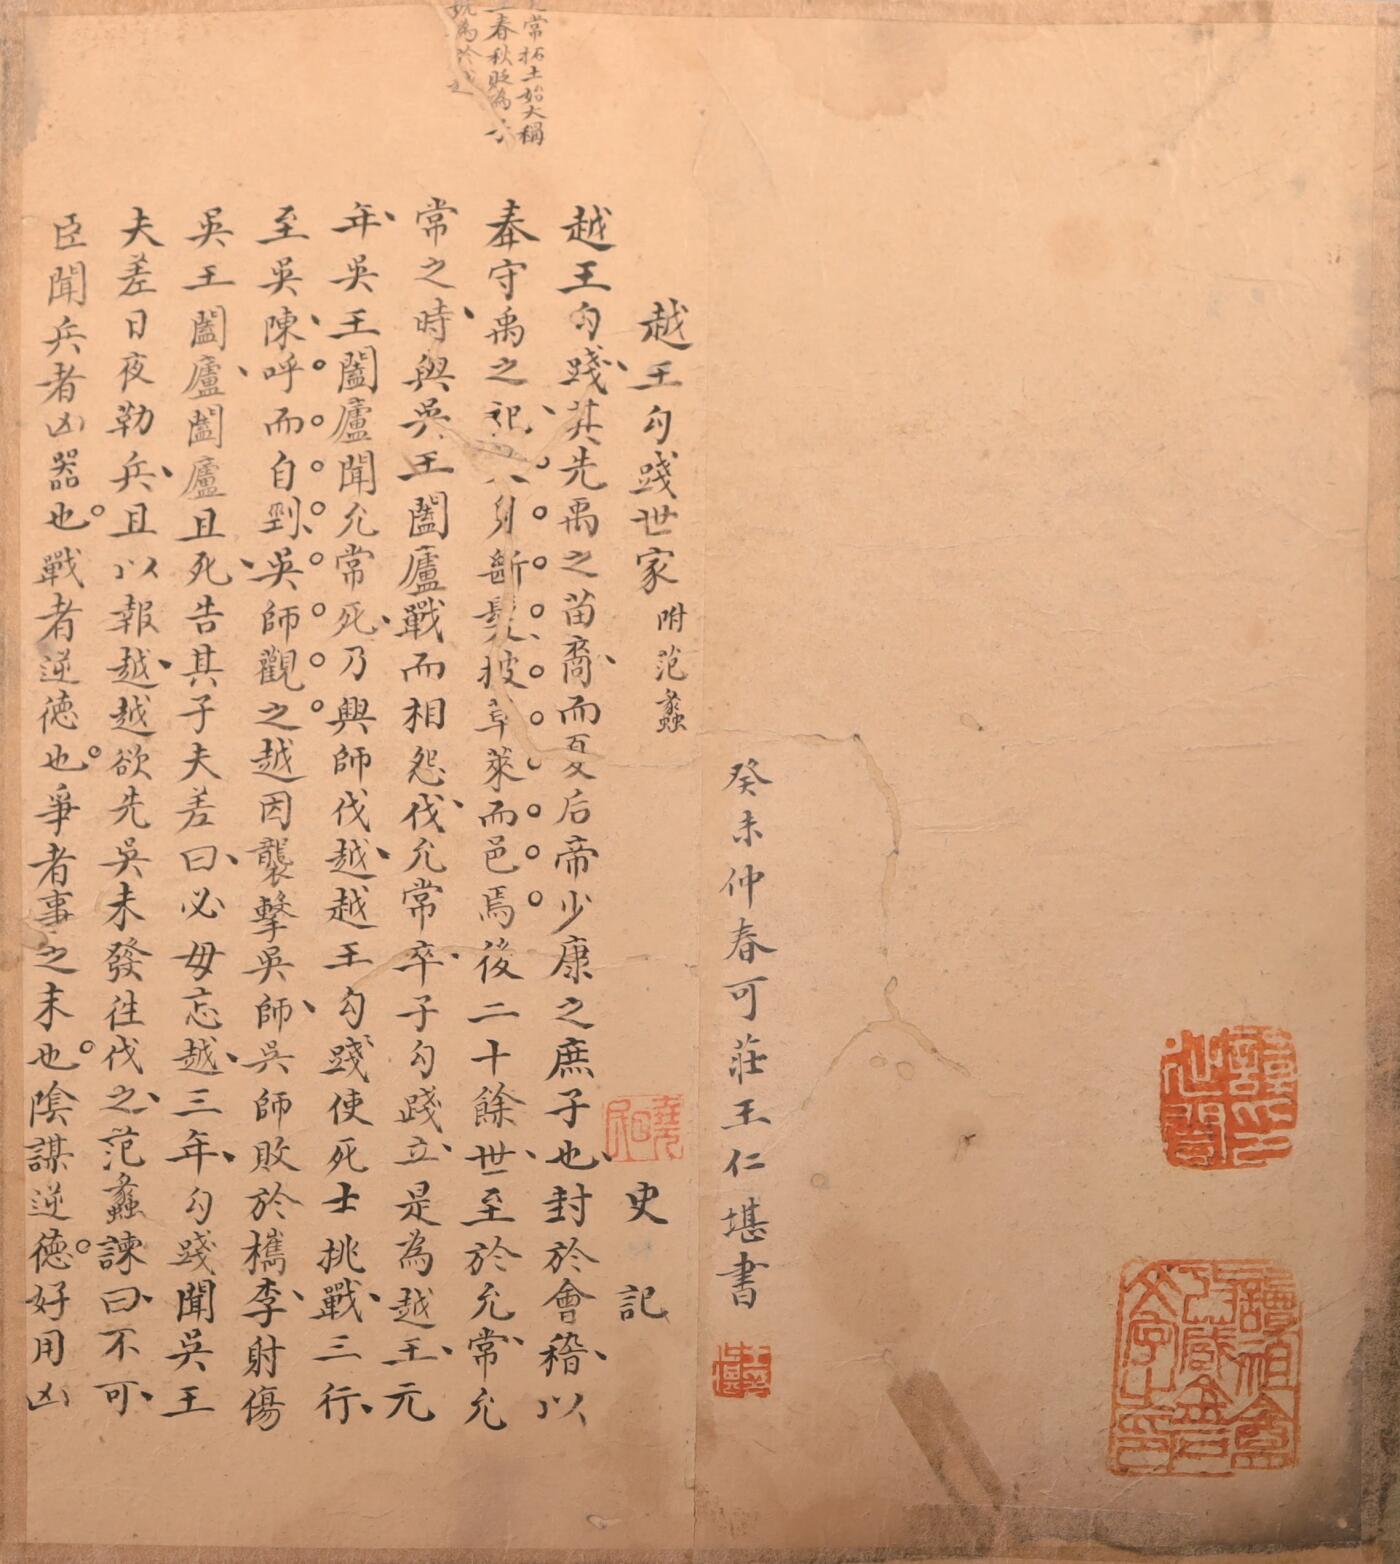 癸未仲春可莊王仁堪書
越王勾踐世家 附范蠡
史記
越王勾踐其先禹之苗裔而夏后帝少康之庶子也封於會稽以
奉守禹之祀身斷髮披草萊而邑焉後二十餘世至於允常允
常之時與吳王闔廬戰而相怨伐允常卒子勾踐立是為越王元
年吳王闔廬聞允常死乃興師伐越越王勾踐使死士挑戰三行
至吳陳呼而自剄吳師觀之越因襲擊吳師吳師敗於檇李射傷
吳王闔廬闔廬且死告其子夫差曰必毋忘越三年勾踐聞吳王
夫差日夜勒兵且以報越越欲先吳未發往伐之范蠡諫曰不可
臣聞兵者凶器也戰者逆德也爭者事之末也陰謀逆德好用凶
常拓土始大稱
春秋貶為子
為於越